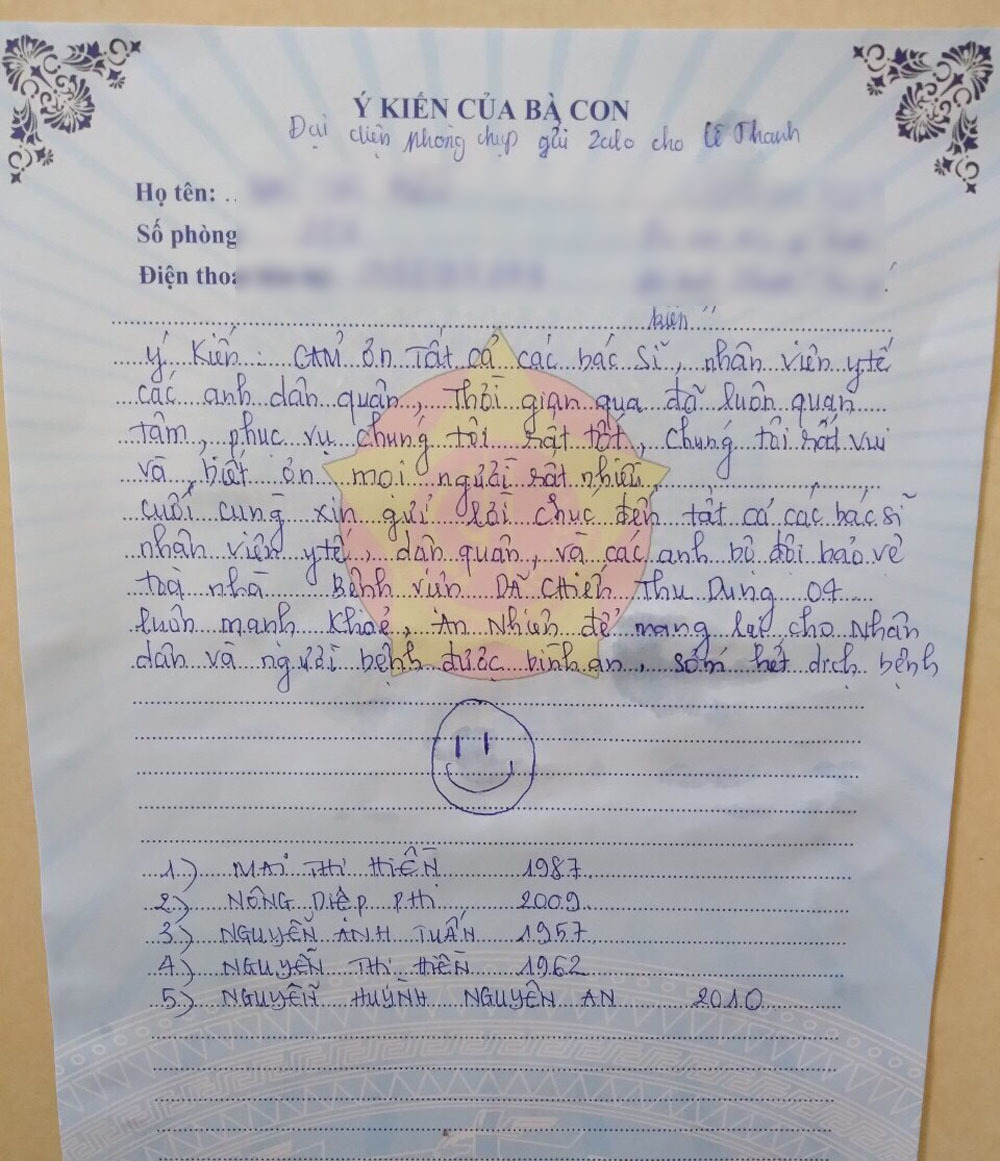 Ý KIẾN CỦA BÀ CON
Đại diện phòng chụp gửi Zalo cho Lê Thanh
Họ tên: ..
Số phòng
Điện thoạ
kiến
Ý Kiến : CẢM ơn Tất cả các bác sĩ, nhân viên y tế
các anh dân quân, Thời gian qua đã luôn quan
tâm, phục vụ chúng tôi rất tốt, chúng tôi rất vui
và biết ơn mọi người rất nhiều,
cuối cùng xin gửi lời chúc đến tất cả các bác sĩ
nhân viên y tế, dân quân, và các anh bộ đôi bảo vệ
toà nhà Bệnh viện DÃ CHIẾN Thu Dung 04
luôn mạnh Khoẻ, An Nhiên để mang lại cho Nhân
dân và người bệnh được bình an, sớm hết dịch bệnh
1.) MAI THỊ HIỀN 1987
2.) NÔNG DIỆP PHI 2009
3.) NGUYỄN ANH TUẤN 1957
4.) NGUYỄN THỊ HIỀN 1962
5.) NGUYỄN HUỲNH NGUYÊN AN 2010